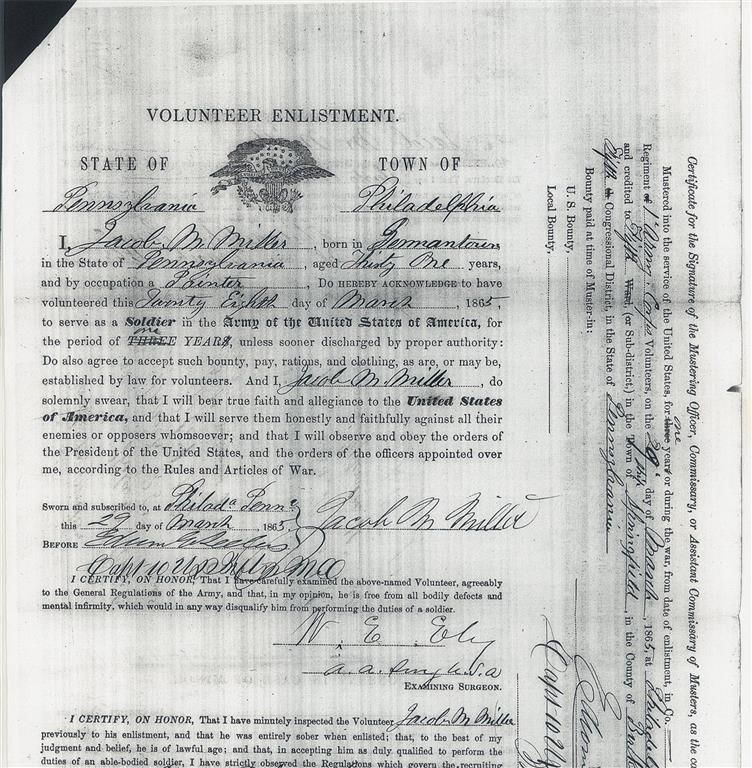 VOLUNTEER ENLISTMENT.
STATE OF TOWN OF
Pennsylvania Philadelphia
I, Jacob M. Miller, born in Germantown
in the State of Pennsylvania, aged Thirty One years,
and by occupation a Painter, Do HEREBY ACKNOWLEDGE to have
volunteered this Twenty Eighth day of March, 1865,
to serve as a Soldier in the Army of the United States of America, for
the period of THREE one YEARS, unless sooner discharged by proper authority:
Do also agree to accept such bounty, pay, rations, and clothing, as are, or may be,
established by law for volunteers. And I, Jacob M. Miller, do
solemnly swear, that I will bear true faith and allegiance to the United States
of America, and that I will serve them honestly and faithfully against all their
enemies or opposers whomsoever; and that I will observe and obey the orders
of the President of the United States, and the orders of the officers appointed over
me, according to the Rules and Articles of War.
Sworn and subscribed to, at Philada Penna
this 29 day of March 1865, Jacob M Miller
BEFORE
Capt 10 U.S.
I CERTIFY, ON HONOR, That I have carefully examined the above-named Volunteer, agreeably
to the General Regulations of the Army, and that, in my opinion, he is free from all bodily defects and
mental infirmity, which would in any way disqualify him from performing the duties of a soldier.
W. E. Eby
EXAMINING SURGEON.
I CERTIFY, ON HONOR, That I have minutely inspected the Volunteer Jacob M Miller
previously to his enlistment, and that he was entirely sober when enlisted; that, to the best of my
judgment and belief, he is of lawful age; and that, in accepting him as duly qualified to perform the
duties of an able-bodied soldier, I have strictly observed the Regulations which govern the recruiting
Certificate for the Signature of the Mustering Officer, Commissary, or Assistant Commissary of Musters, as the
Mustered into the service of the United States, for three one years or during the war, from date of enlistment, in Co.
Regiment of 1" Army Corps Volunteers, on the day of March, 1865, at
and credited to Fifth Ward, (or Sub-district,) in the Town of Springfield, in the County of
Fifth Congressional District, in the State of Pennsylvania
Bounty paid at time of Muster-in:
U. S. Bounty,
Local Bounty,
Capt 10